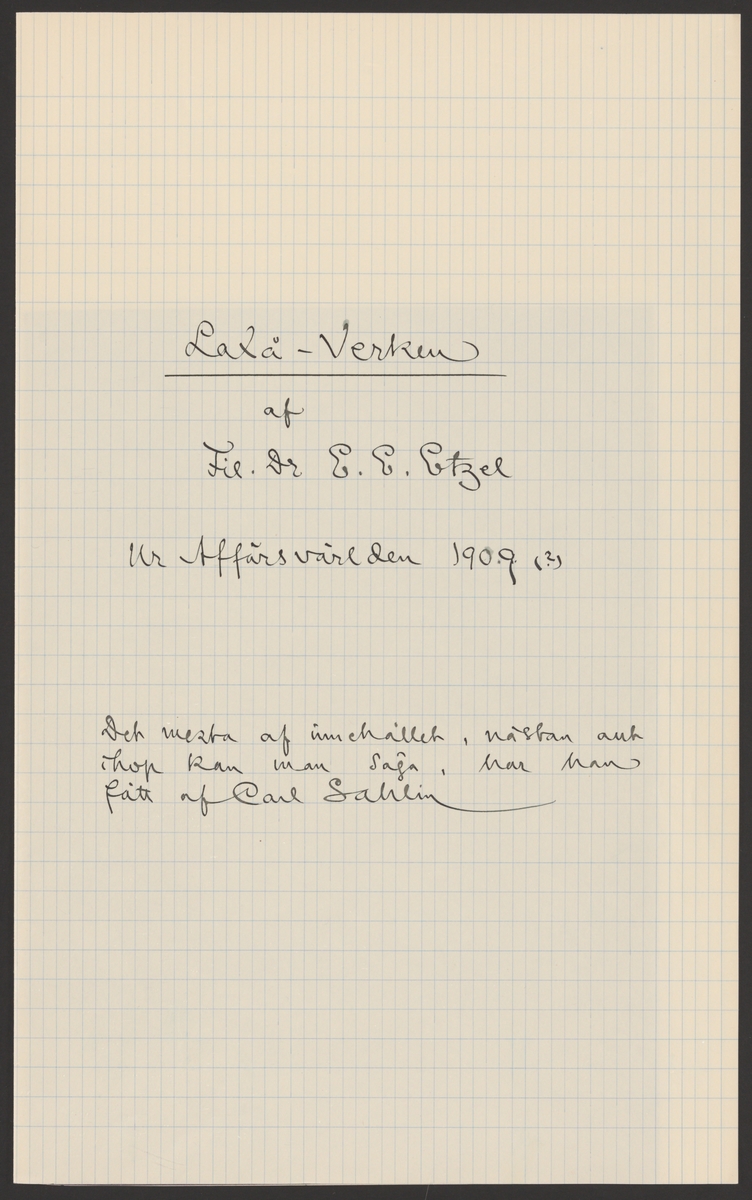 Laxå-Verken
af
Fil. Dr E. E. Etzel
Ur Affärsvärlden 1909 (?)
Det mesta af innehållet, nästan allt
ihop kan man säga, har han
fått af Carl Sahlin